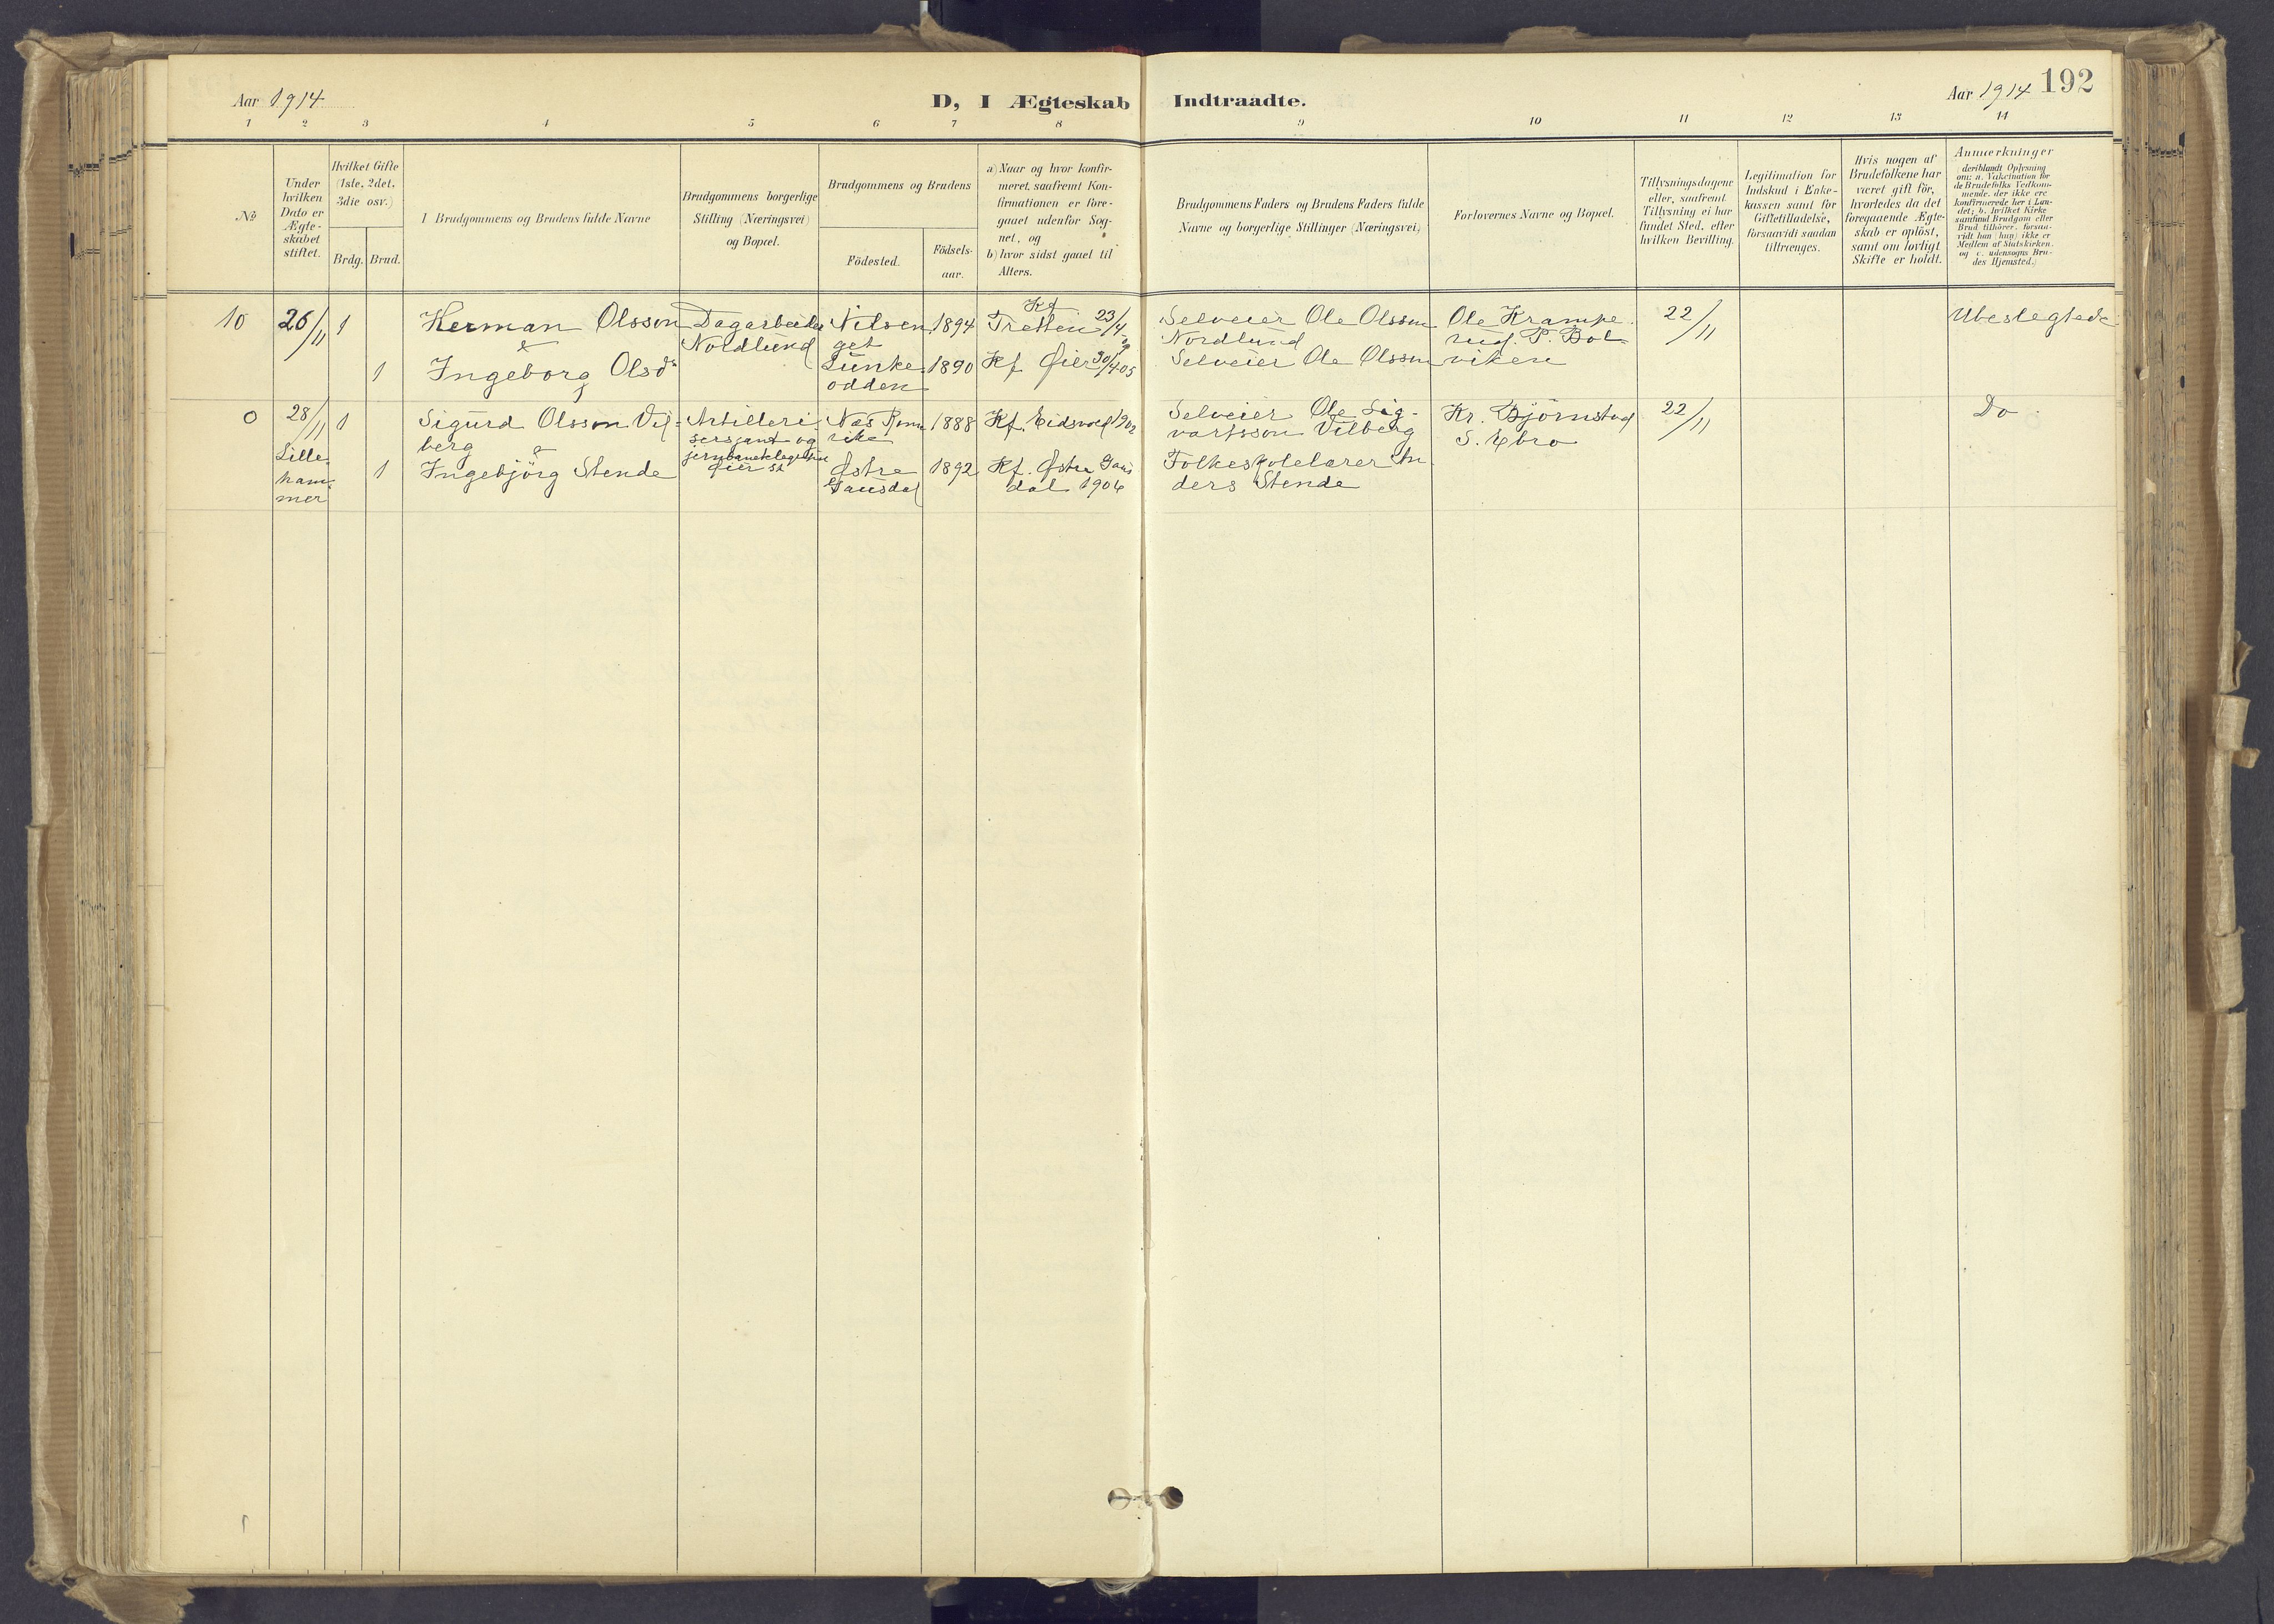 Aar 1914
D, I Ægteskab Indtraadte.
Aar 1914 192
1 2 3 4 5 6 7 8 9 10 11 12 13 14
№
Under
hvilken
Dato er
Ægte-
skabet
stiftet.
Hvilket Gifte
(1ste, 2det,
3die osv.)
Brdg. Brud.
I Brudgommens og Brudens fulde Navne
Brudgommens borgerlige
Stilling (Næringsvei)
og Bopæl.
Brudgommens og Brudens
Födested.
Födsels-
aar.
a) Naar og hvor konfir-
meret, saafremt Kon-
firmationen er fore-
gaaet udenfor Sog-
net, og
b) hvor sidst gaaet til
Alters.
Brudgommens Faders og Brudens Faders fulde
Navne og borgerlige Stillinger (Næringsvei)
Forlovernes Navne og Bopæl.
Tillysningsdagene
eller, saafremt
Tillysning ei har
fundet Sted, efter
hvilken Bevilling.
Legitimation for
Indskud i Enke-
kassen samt for
Giftetilladelse,
forsaavidt saadan
tiltrænges.
Hvis nogen af
Brudefolkene har
været gift för,
hvorledes da det
foregaaende Ægte-
skab er oplöst,
samt om lovligt
Skifte er holdt.
Anmærkninger
deriblandt Oplysning
om: a. Vakcination for
de Brudefolks Vedkom-
mende, der ikke ere
konfirmerede her i Lan-
det; b. hvilket Kirke
samfund Brudgom eller
Brud tilhörer, forsaa-
vidt han (hun) ikke er
Medlem af Statskirken.
og c. udensogns Bru-
des Hjemsted.)
10
26/11
1
Herman Olsson
&
1
Ingeborg Olsd
Dagarbeider
Nordlund
Nilsen
get
1894
Kf
Tretten 23/4 09
Lunke
odden
1890
Kf Øier 30/4 05
Selveier Ole Olsson
Nordlund
Selveier Ole Olsson
Ole Krampe
rud. P. Bol
viken
22/11
Ubeslegtede
0
28/11
Lille
ham
mer
1
Sigurd Olsson Vil-
berg
&
1
Ingebjörg Stende
Artilleri
sersjant og
Øier St
Næs Rome
rike
1888
Kf. Eidsvold 1902
Østre
Gausdal
1892
Kf. Østre Gaus
dal 1906
Selveier Ole Sig-
vartsson Vilberg
Folkeskolelærer An
ders Stende
Kr. Björnstad
S. Ebro
22/11
Do